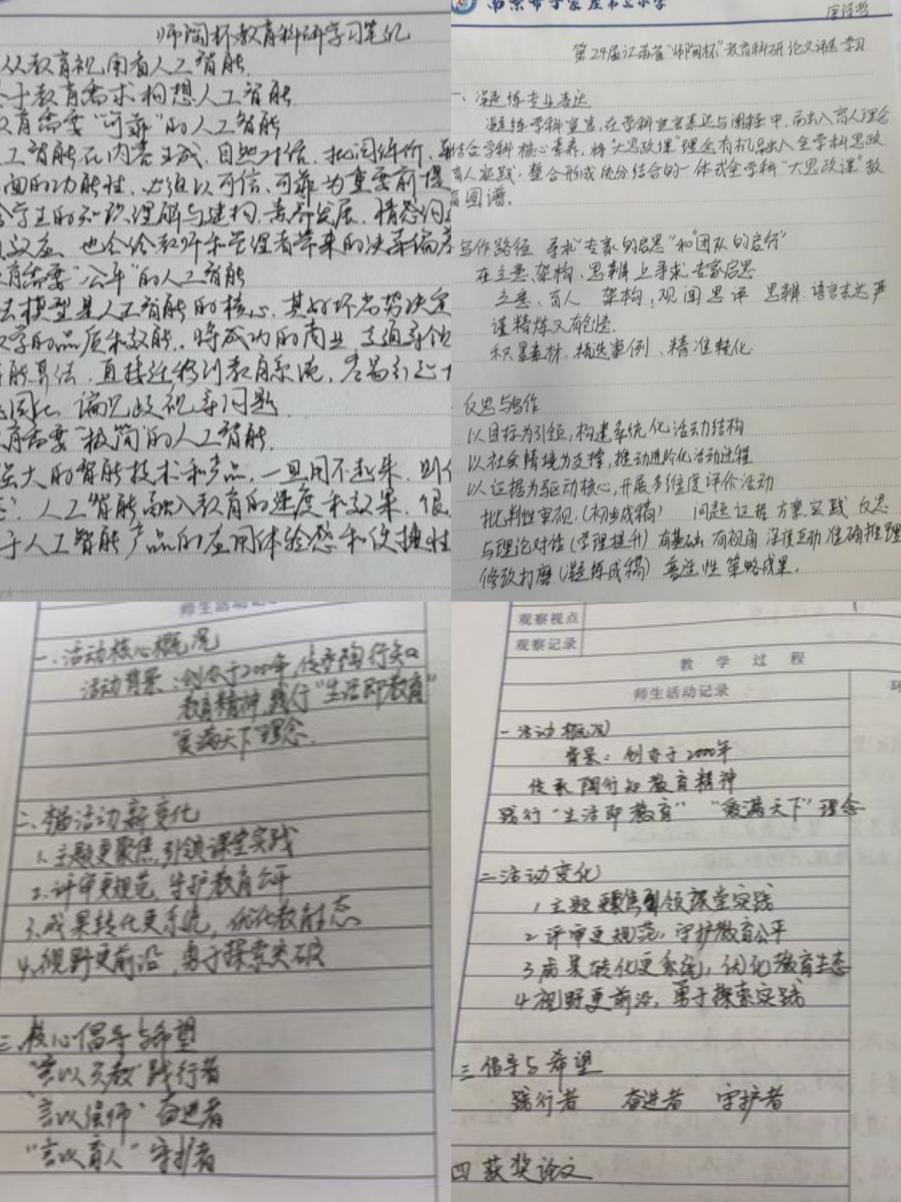 师陶杯教育科研学习笔记
从教育视角看人工智能
于教育需求构想人工智能
教育需要“可靠”的人工智能
工智能在内容生成、自动对话、批阅评价、
面的功能性，必须以可信、可靠为重要前提
学生的知识理解与建构、素养发展、情感
效应，也会给教师和管理者带来的决策偏差
育需要“公平”的人工智能
法模型是人工智能的核心，其好坏劣势决定
学的品质和效能。将成功的商业、交通等领
能算法，直接迁移到教育系统，容易引起
固化、偏见歧视等问题
育需要“极简”的人工智能
强大的智能技术和产品，一旦用不起来，则
人工智能融入教育的速度和效果，很
于人工智能产品的应用体验感和便捷性
第24届江苏省“师陶杯”教育科研论文评选 学习
一、凝练专业表达
凝练学科宣言，在学科宣言表达与阐释中，融入育人理念
结合学科核心素养，将“大思政课”理念有机融入全学科思政
育人实践，整合形成统分结合的一体式全学科“大思政课”教
育图谱。
写作路径 寻求“专家的启思”和“团队的启行”
在立意、架构、思辨上寻求专家启思
立意、育人 架构，观闻思评 思辨 语言表达严
谨精炼又有创意
积累素材，挑选案例，精准转化
反思与写作
以目标为引领，构建系统化活动结构
以社会情境为支撑，推动进阶化活动过程
以证据为驱动核心，开展多维度评价活动
批判性审视（初步成稿） 问题 证据 方案 实践 反思
与理论对话（学理提升）有基础 有视角 深度互动 准确推理
修改打磨（凝练成稿）普适性 策略成果。
师生活动记录
一、活动核心概况
活动背景：创办于2000年，传承陶行知
教育精神，践行“生活即教育”
“爱满天下”理念.
二、活动新变化
1.主题更聚焦，引领课堂实践
2.评审更规范，守护教育公平
3.成果转化更系统，优化教育生态
4.视野更前沿，勇于探索突破
三、核心倡导与希望
“言以立教”践行者
“言以强师”奋进者
“言以育人”守护者
观察视点
观察记录
教 学 过 程
师生活动记录
一 活动概况
背景：创办于2000年
传承陶行知教育精神
践行“生活即教育” “爱满天下”理念
二 活动变化
1 主题更聚焦引领课堂实践
2 评审更规范，守护教育公平
3 成果转化更系统，优化教育生态
4 视野更前沿，勇于探索实践
三 倡导与希望
践行者 奋进者 守护者
四 获奖论文